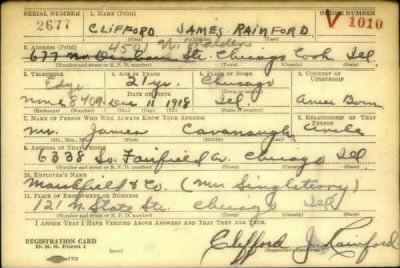 SERIAL NUMBER 1. NAME (Print) V
2677 CLIFFORD JAMES RAINFORD 1010
4501 N. Malden
2. ADDRESS (Print)
677 St. Chicago Cook Ill.
(Number and street or R. F. D. number) (Town) (County) (State)
3. TELEPHONE 4. AGE IN YEARS 5. PLACE OF BIRTH 6. COUNTRY OF CITIZENSHIP
21 yrs. Chicago
8409 Dec 11 1918 Ill. Amer Born
7. NAME OF PERSON WHO WILL ALWAYS KNOW YOUR ADDRESS 8. RELATIONSHIP OF THAT PERSON
Mr. James Cavanaugh Uncle
(Mr., Mrs., Miss) (First) (Middle) (Last)
9. ADDRESS OF THAT PERSON
6338 So. Fairfield Av. Chicago Ill
(Number and street or R. F. D. number) (Town) (County) (State)
10. EMPLOYER'S NAME
(Mr Singleterry)
11. PLACE OF EMPLOYMENT OR BUSINESS
121 N. State St. Chicago Ill
(Number and street or R. F. D. number) (Town) (County) (State)
I AFFIRM THAT I HAVE VERIFIED ABOVE ANSWERS AND THAT THEY ARE TRUE.
REGISTRATION CARD
D. S. S. Form 1
Clifford J. Rainford